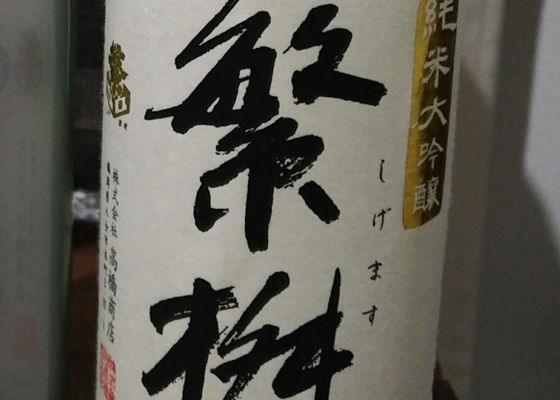 純米大吟醸
繁桝
しげます
株式会社高橋商店